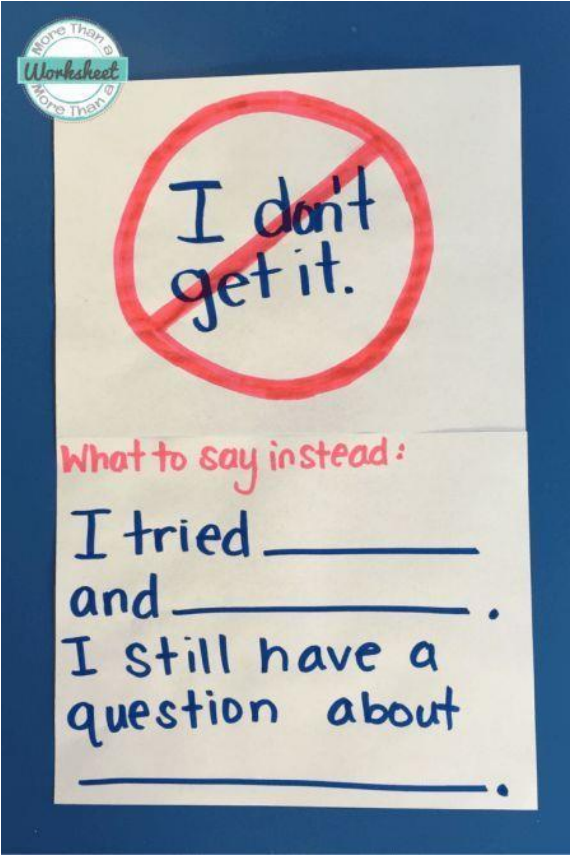 More Than a
Worksheet
More Than a
I don't
get it.
What to say instead:
I tried ____________
and ________________.
I still have a
question about
______________________.